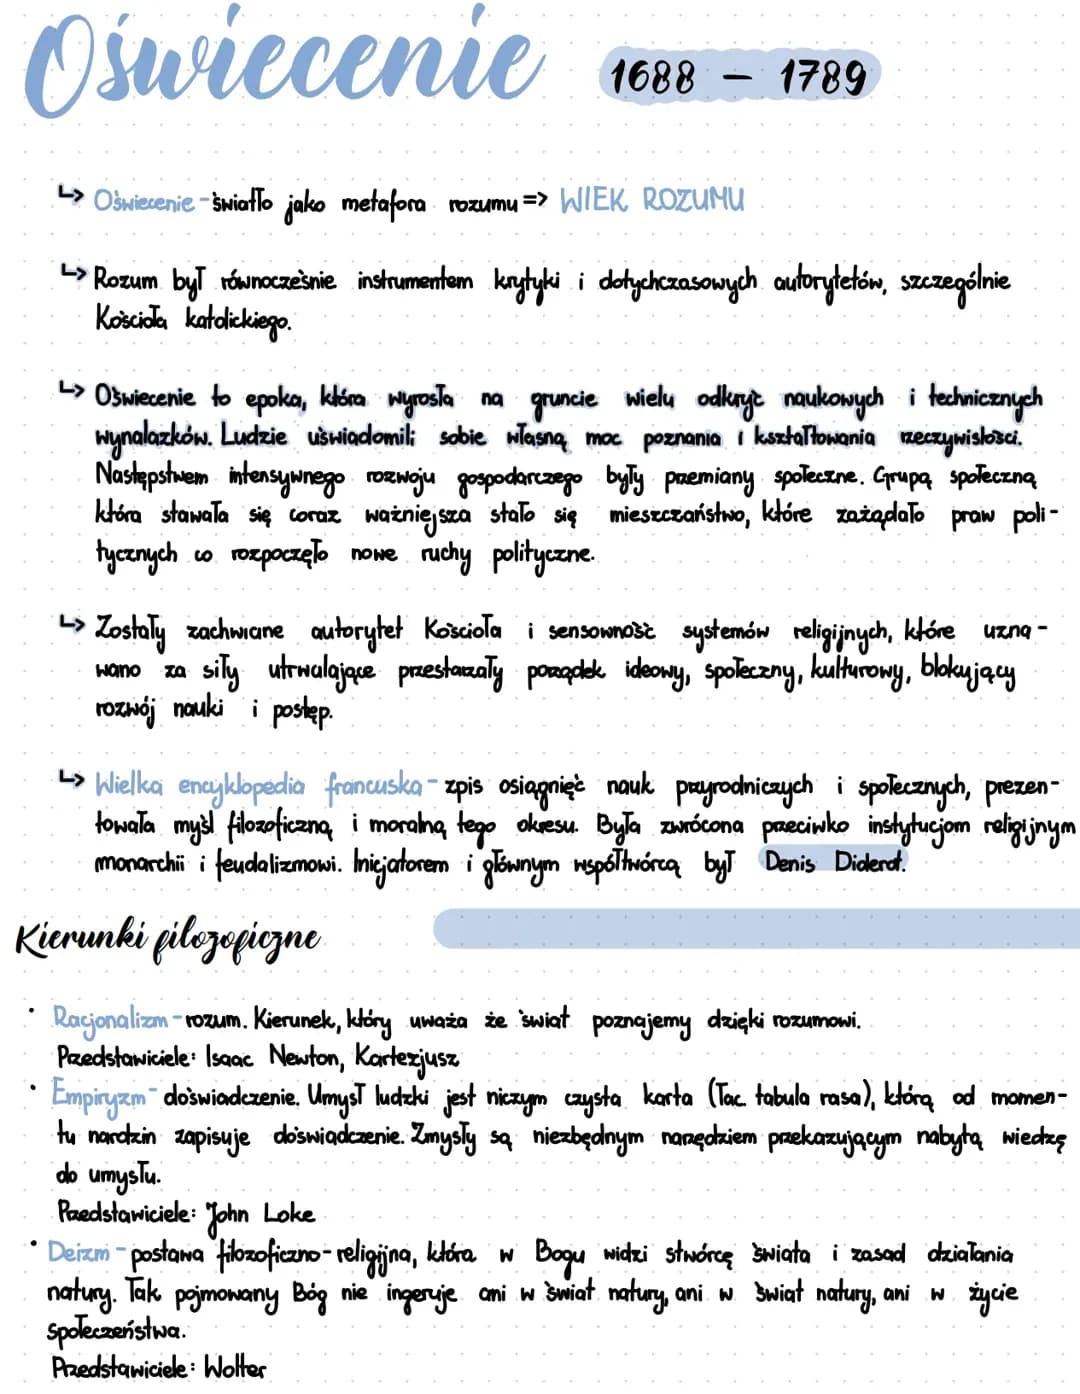 Oświecenie 1688 – 1789
↳ Oświecenie - światło jako metafora rozumu => WIEK ROZUMU
↳ Rozum był równocześnie instrumentem krytyki i dotychczasowych autorytetów, szczególnie
Kościoła katolickiego.
↳ Oświecenie to epoka, która wyrosła na gruncie wielu odkryć naukowych i technicznych
wynalazków. Ludzie uświadomili sobie własną moc poznania i kształtowania rzeczywisłości.
Następstwem intensywnego rozwoju gospodarczego były przemiany społeczne. Grupą społeczną
która stawała się coraz ważniejsza stało się mieszczaństwo, które zażądało praw poli-
tycznych co rozpoczęło nowe ruchy polityczne.
↳ Zostały zachwiane autorytet Kościoła i sensowność systemów religijnych, które uzna-
wano za siły utrwalające przestarzały porządek ideowy, społeczny, kulturowy, blokujący
rozwój nauki i postęp.
↳ Wielka encyklopedia francuska - zpis osiągnięć nauk przyrodniczych i społecznych, prezen-
towała myśl filozoficzną i moralną tego okresu. Była zwrócona przeciwko instytucjom religijnym
monarchii i feudalizmowi. Inicjatorem i głównym współtwórcą był Denis Diderot.
Kierunki filozoficzne
• Racjonalizm - rozum. Kierunek, który uważa że świat poznajemy dzięki rozumowi.
Przedstawiciele: Isaac Newton, Kartezjusz
• Empiryzm - doświadczenie. Umysł ludzki jest niczym czysta karta (łac. tabula rasa), którą od momen-
tu nardzin zapisuje doświadczenie. Zmysły są niezbędnym narzędziem przekazującym nabytą wiedzę
do umysłu.
Przedstawiciele: John Loke
• Deizm - postawa filozoficzno-religijna, która w Bogu widzi stwórcę świata i zasad działania
natury. Tak pojmowany Bóg nie ingeruje ani w świat natury, ani w świat natury, ani w życie
społeczeństwa.
Przedstawiciele: Wolter